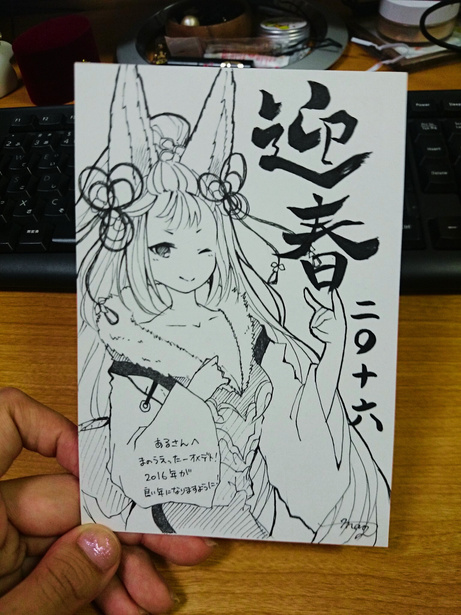 迎春
二〇十六
あるさんへ
まのうえったーオメデト!
2016年が
良い年になりますように